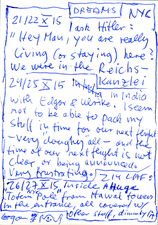 DREAMS NYC
21/22 X 15 I ask Hitler:
"Hey Man, you are really
living (or staying) here?
We were in the Reichs-
kanzlei
24/25 X 15 in India
with Edgar & Ulrike. I seem
not to be able to pack my
stuff in time for our next flight
- very clouding all - and the
time of our next flight is not
clear or being announced.
Very frustrating.
26/27 X 15 Inside a Huge
Totem Pole from Hawai towers
in the entrance, all covered w/
other stuff, dimmly